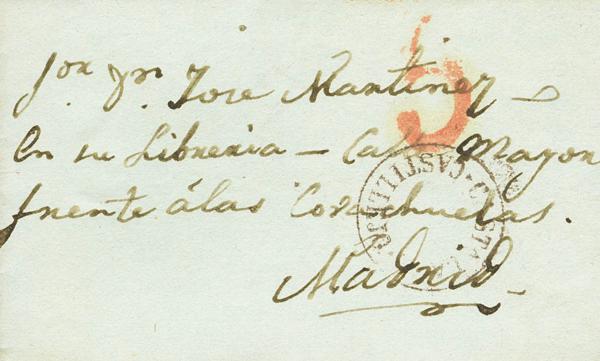 5
Sor. Dn. Jose Martinez
En su Libreria - Calle Mayor
frente á las Covachuelas.
Madrid
CASTILLA